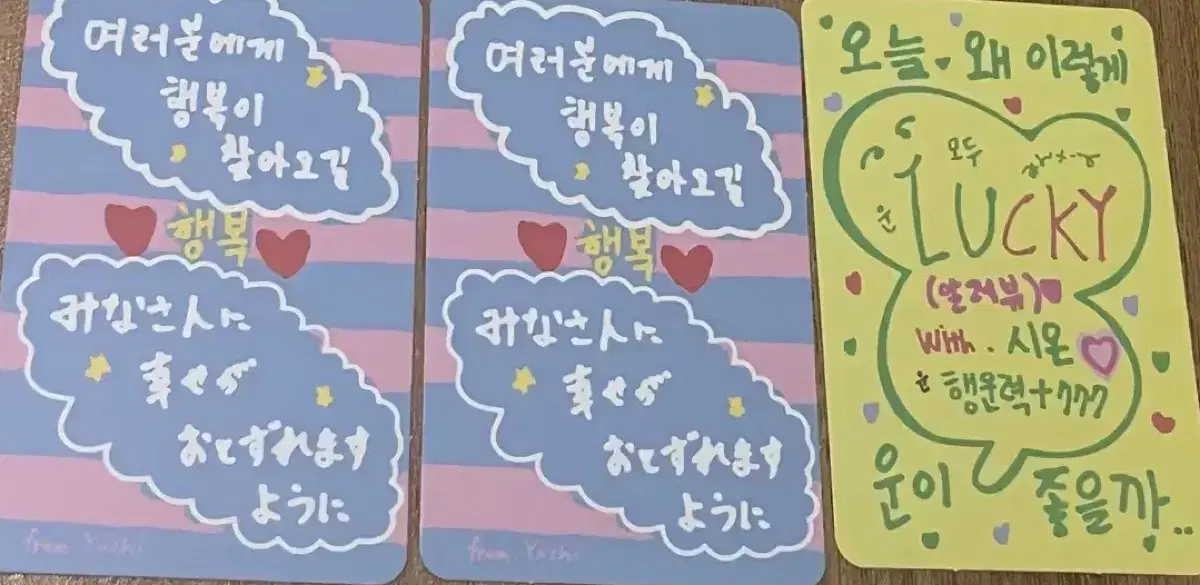 여러분에게
행복이
찾아오길
행복
みなさんに
幸せが
おとずれます
ように
from. Yushi
여러분에게
행복이
찾아오길
행복
みなさんに
幸せが
おとずれます
ように
from. Yushi
오늘. 왜 이렇게
모두
운
LUCKY
(알러뷰)
with. 시온
운 행운력+777
운이 좋을까..